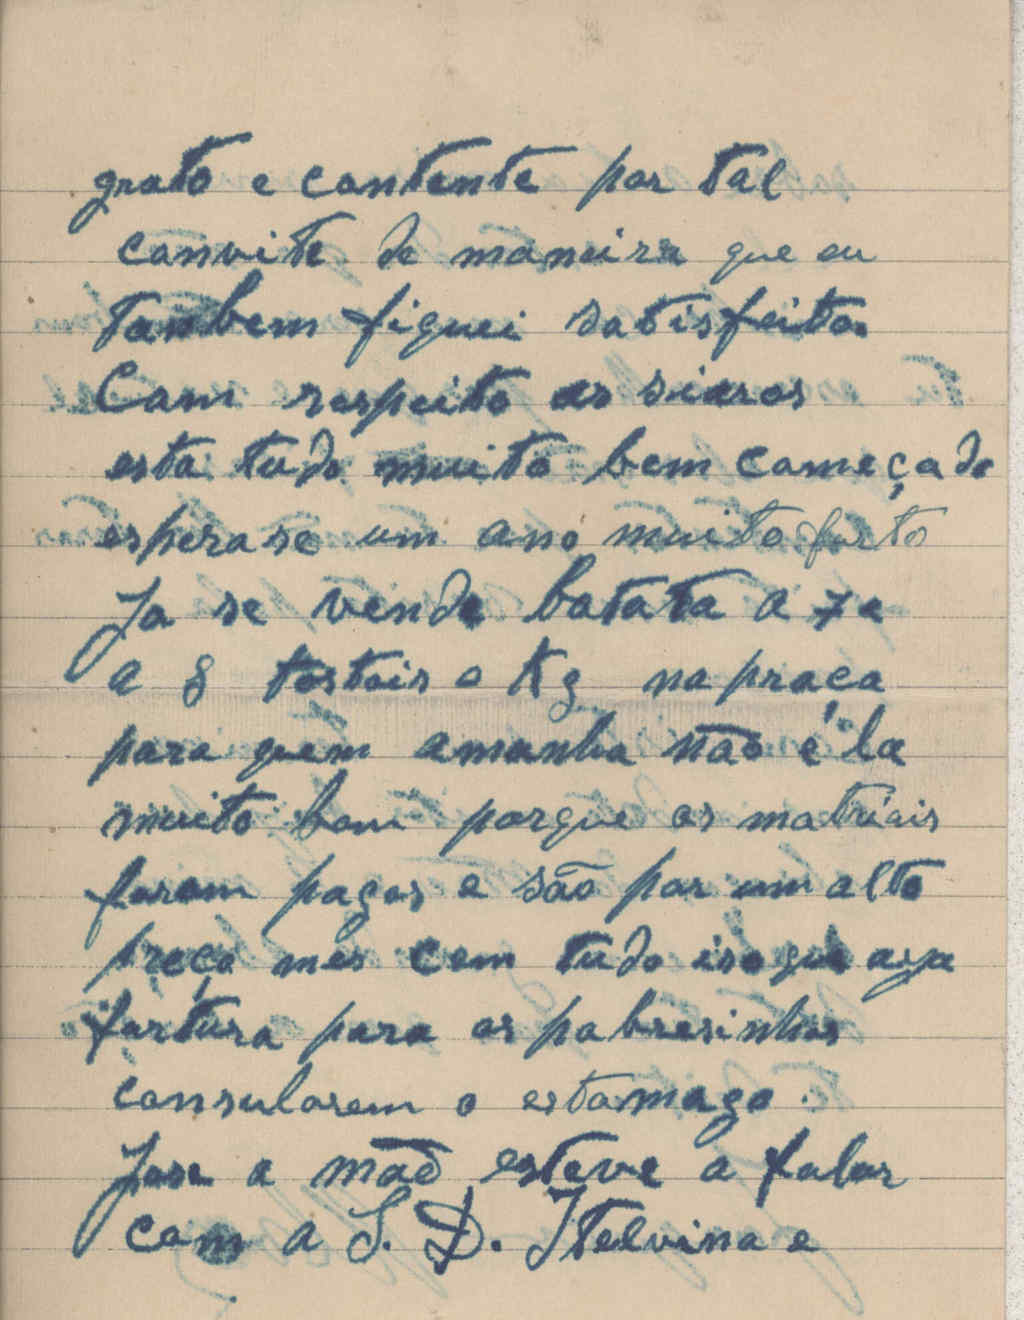 grato e contente por tal
convite de maneira que eu
tambem fiquei satisfeito.
Com respeito as siaras
esta tudo muito bem começado
esperase um ano muito farto
Ja se vende batata a 7 e
a 8 tostois o Kg na praça
para quem amanha não é la
muito bom porque os matriais
foram pagos e são por um alto
preço mes com tudo iso que aja
fartura para os pobresinhos
consularem o estomago.
Jose a mãe esteve a falar
com a S. D. Itelvina e